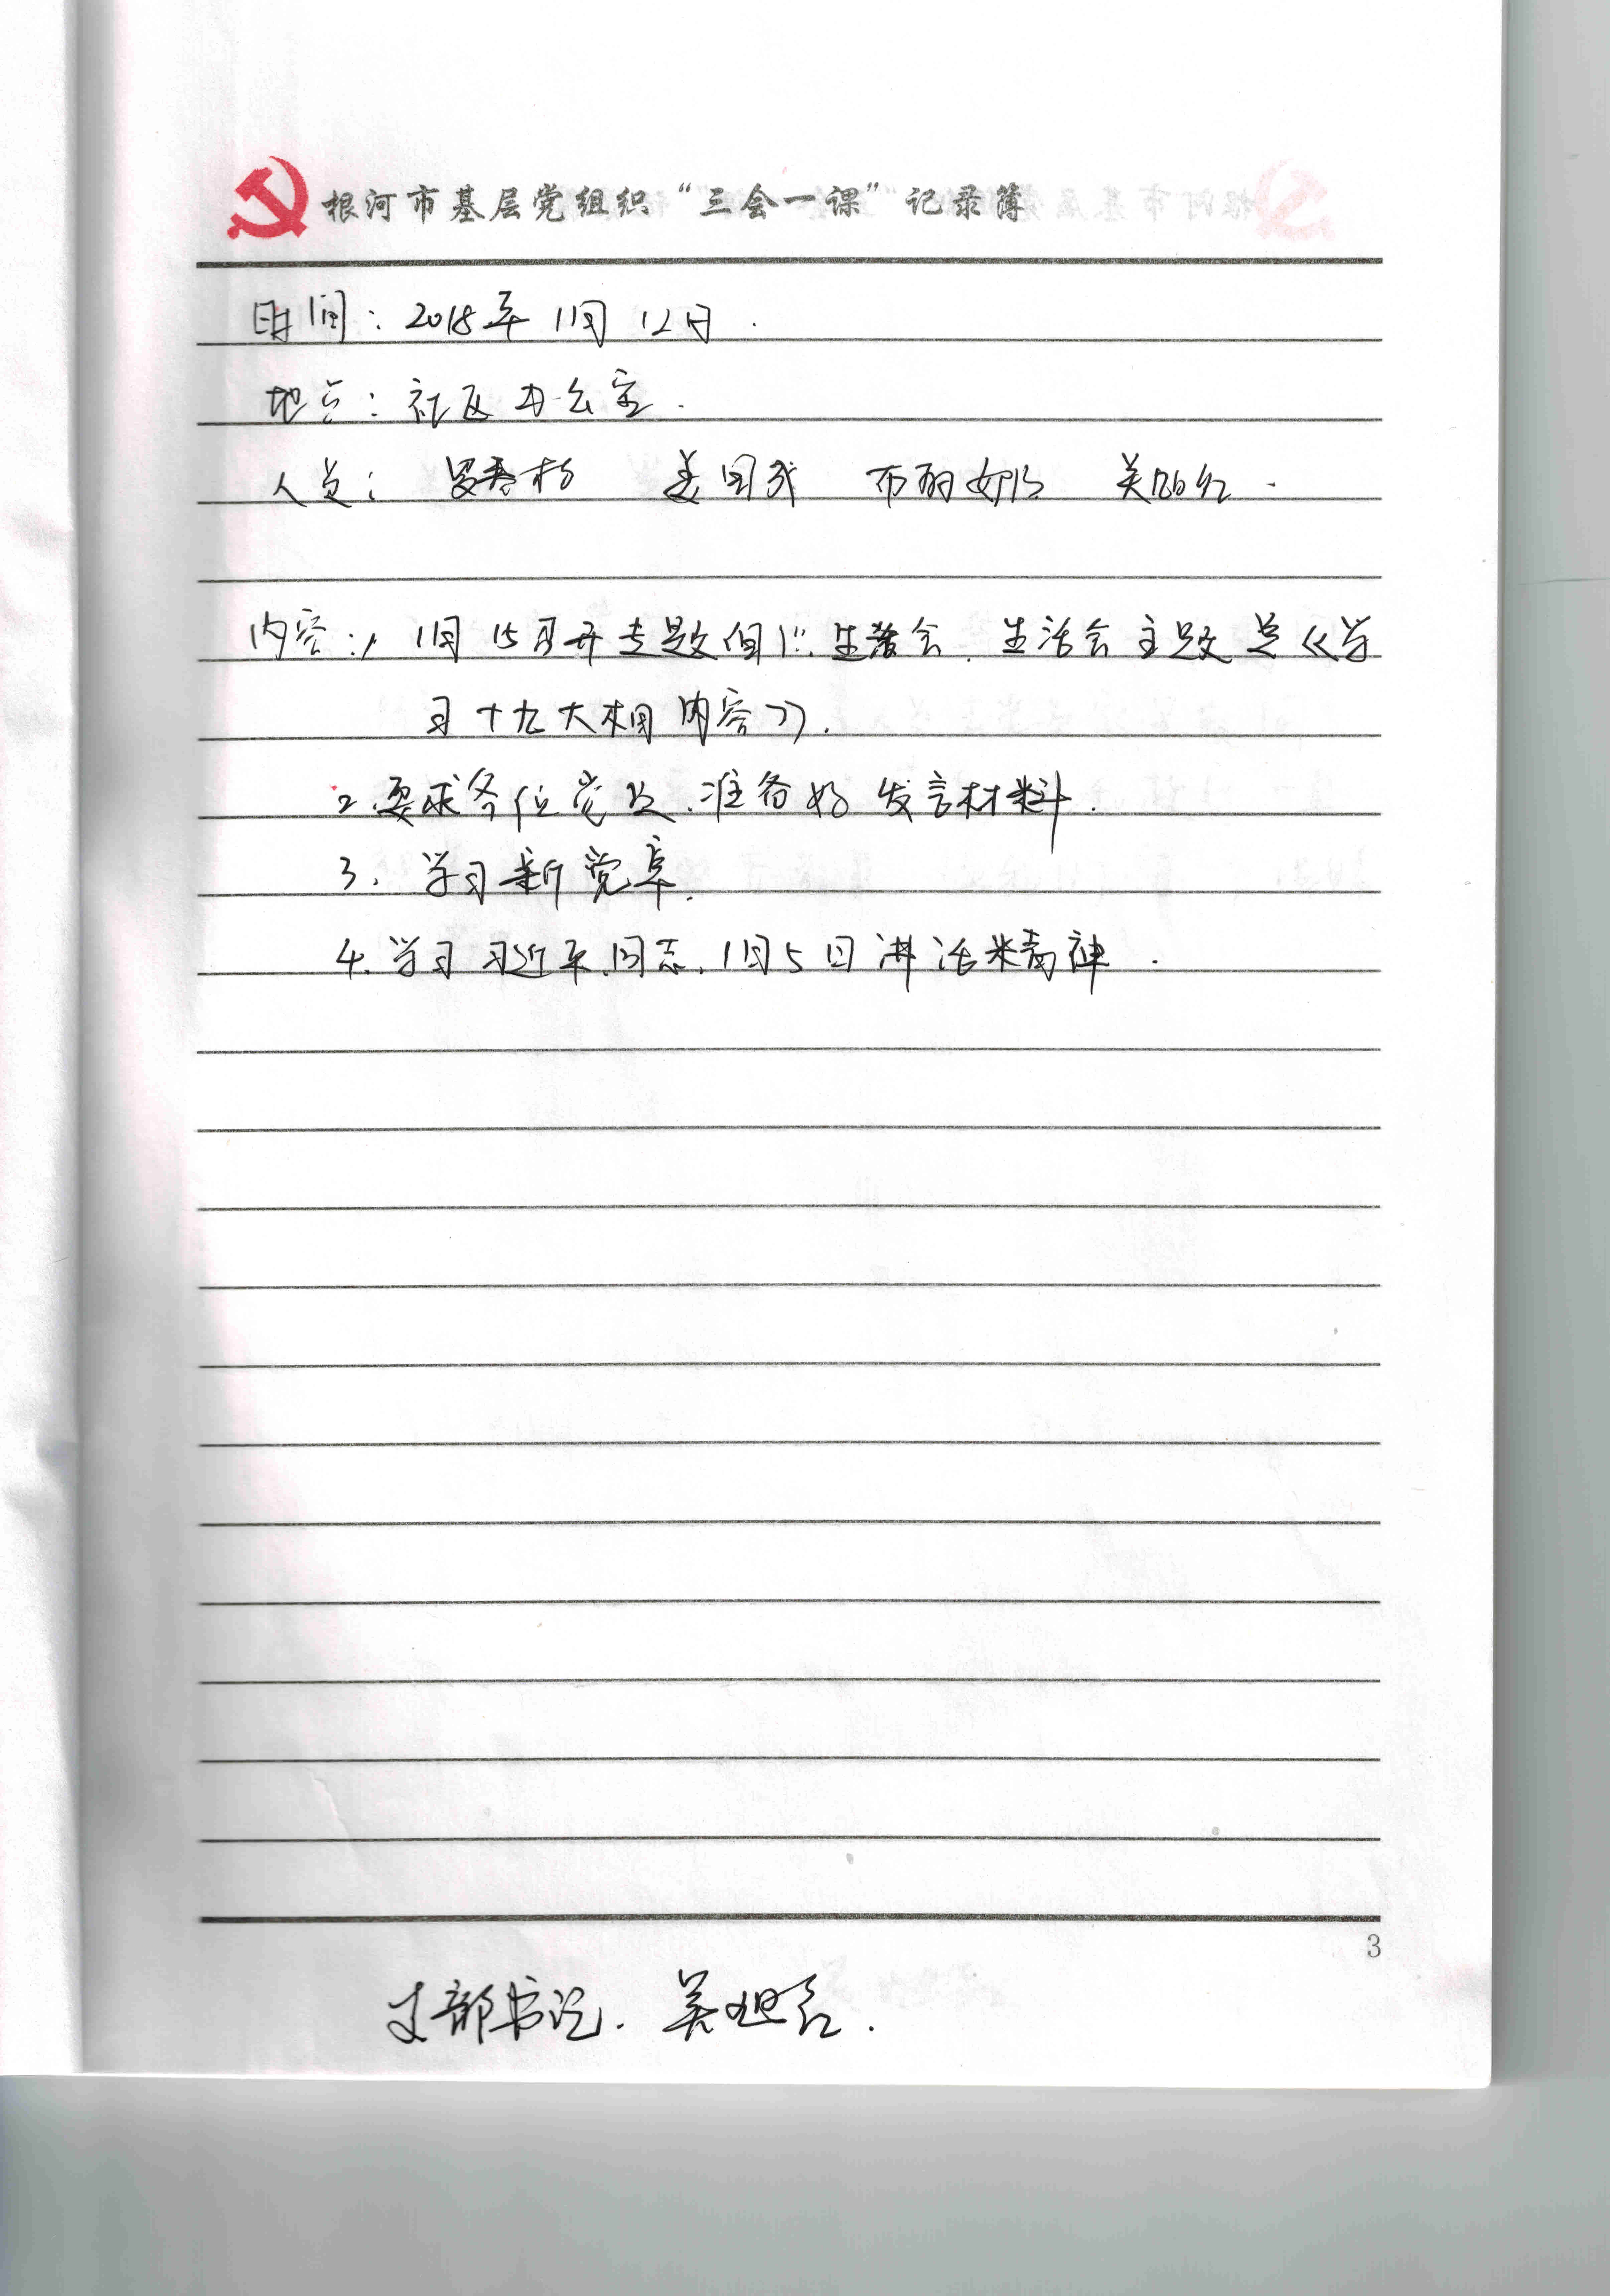 根河市基层党组织“三会一课”记录簿
时间:2018年1月12日.
地点:社区办公室.
人员:
内容:1、1月15日开专题组织生活会.生活会主题是《学
习十九大相内容》.
2.要求各位党员.准备好发言材料.
3.学习新党章.
4.学习习近平.同志.1月5日讲话精神.
3
支部书记.